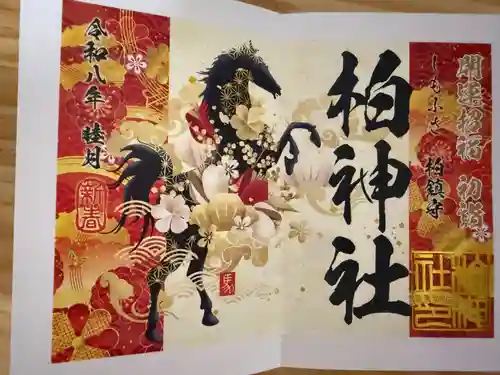 開運招福 初詣
しもふさ 柏鎮守
柏神社
令和八年 睦月
新春
馬